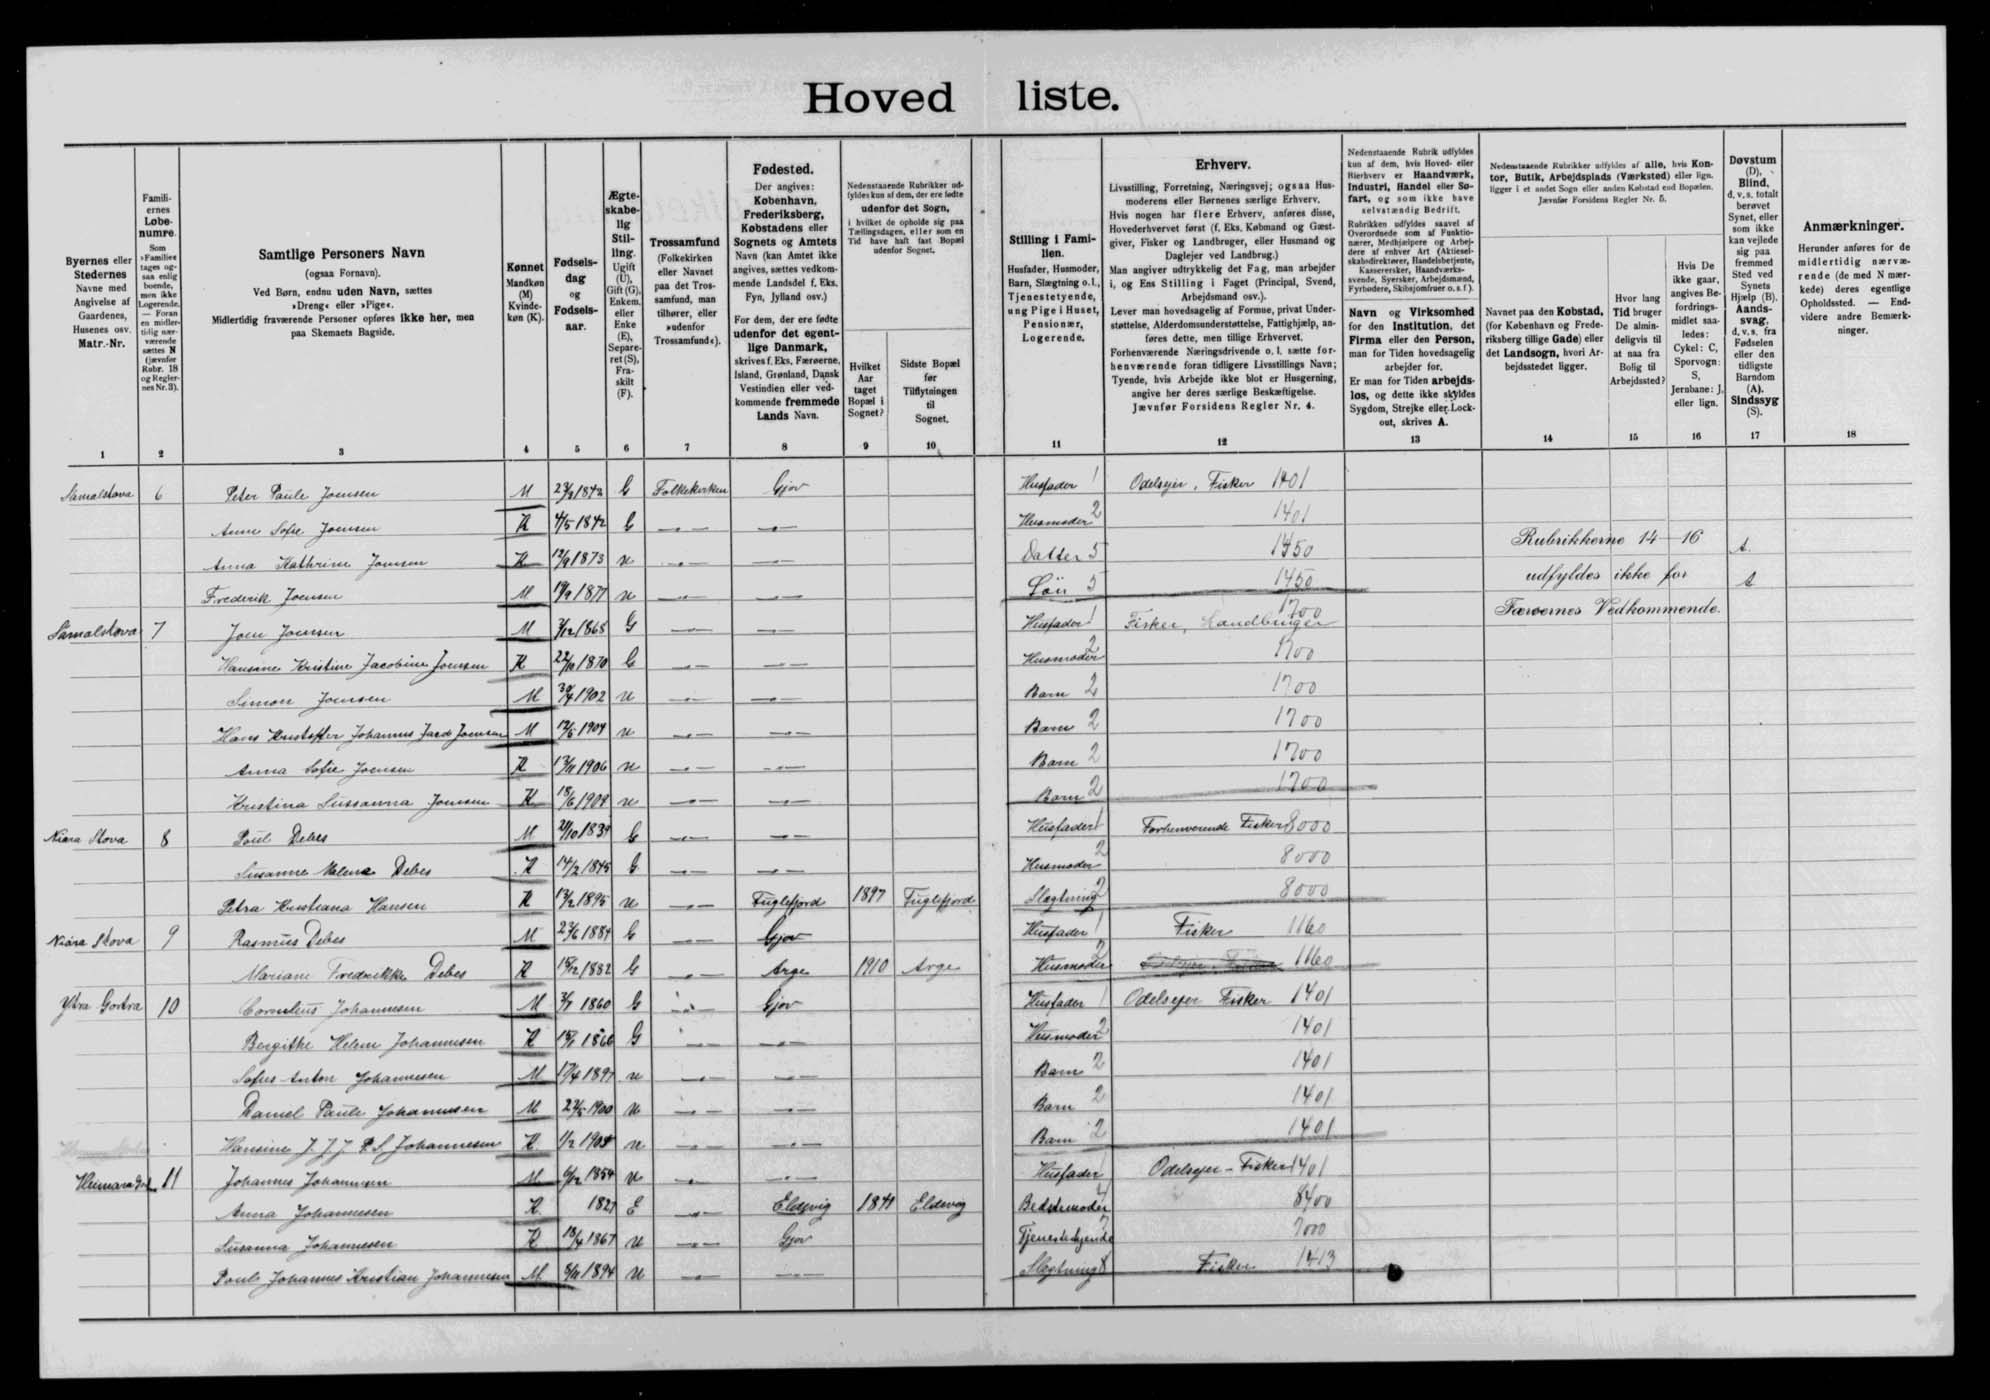 Hoved liste.
Byernes eller Stedernes Navne med Angivelse af Gaardenes, Husenes osv. Matr.-Nr.
Famili-ernes Løbe-numre. Som »Familie« tages og-saa enlig boende, men ikke Logerende. — Foran en midler-tidig nær-værende sættes N (jævnfør Rubr. 18 og Regler-nes Nr. 3).
Samtlige Personers Navn
(ogsaa Fornavn).
Ved Børn, endnu uden Navn, sættes
»Dreng« eller »Pige«.
Midlertidig fraværende Personer opføres ikke her, men
paa Skemaets Bagside.
Kønnet Mandkøn (M) Kvinde-køn (K).
Fødsels-dag og Fødsels-aar.
Ægte-skabe-lig Stil-ling. Ugift (U), Gift (G), Enkem. eller Enke (E), Separe-ret (S), Fra-skilt (F).
Trossamfund (Folkekirken eller Navnet paa det Tros-samfund, man tilhører, eller »udenfor Trossamfund«).
Fødested. Der angives: København, Frederiksberg, Købstadens eller Sognets og Amtets Navn (kan Amtet ikke angives, sættes vedkom-mende Landsdel f. Eks. Fyn, Jylland osv.)
For dem, der ere fødte udenfor det egent-lige Danmark, skrives f. Eks. Færøerne, Island, Grønland, Dansk Vestindien eller ved-kommende fremmede Lands Navn.
Nedenstaaende Rubrikker ud-fyldes kun af dem, der ere fødte udenfor det Sogn, i hvilket de opholde sig paa Tællingsdagen, eller som en Tid have haft fast Bopæl udenfor Sognet.
Hvilket Aar taget Bopæl i Sognet?
Sidste Bopæl før Tilflytningen til Sognet.
Stilling i Fami-lien. Husfader, Husmoder, Barn, Slægtning o. l., Tjenestetyende, ung Pige i Huset, Pensionær, Logerende.
Erhverv.
Livsstilling, Forretning, Næringsvej; ogsaa Hus-moderens eller Børnenes særlige Erhverv.
Hvis nogen har flere Erhverv, anføres disse, Hovederhvervet først (f. Eks. Købmand og Gæst-giver, Fisker og Landbruger, eller Husmand og Daglejer ved Landbrug.)
Man angiver udtrykkelig det Fag, man arbejder i, og Ens Stilling i Faget (Principal, Svend, Arbejdsmand osv.).
Lever man hovedsagelig af Formue, privat Under-støttelse, Alderdomsunderstøttelse, Fattighjælp, an-føres dette, men tillige Erhvervet.
Forhenværende Næringsdrivende o. l. sætte for-henværende foran tidligere Livsstillings Navn; Tyende, hvis Arbejde ikke blot er Husgerning, angive her deres særlige Beskæftigelse.
Jævnfør Forsidens Regler Nr. 4.
Nedenstaaende Rubrik udfyldes kun af dem, hvis Hoved- eller Bierhverv er Haandværk, Industri, Handel eller Sø-fart, og som ikke have selvstændig Bedrift.
Rubrikken udfyldes saavel af Overordnede som af Funktio-nærer, Medhjælpere og Arbej-dere af enhver Art (Aktiesel-skabsdirektører, Handelsbetjente, Kassererske, Haandværks-svende, Syersker, Arbejdsmænd, Fyrbødere, Skibsjomfruer o. s. f.).
Navn og Virksomhed for den Institution, det Firma eller den Person, man for Tiden hovedsagelig arbejder for.
Er man for Tiden arbejds-løs, og dette ikke skyldes Sygdom, Strejke eller Lock-out, skrives A.
Nedenstaaende Rubrikker udfyldes af alle, hvis Kon-tor, Butik, Arbejdsplads (Værksted) eller lign. ligger i et andet Sogn eller anden Købstad end Bopælen. Jævnfør Forsidens Regler Nr. 5.
Navnet paa den Købstad, (for København og Frede-riksberg tillige Gade) eller det Landsogn, hvori Ar-bejdsstedet ligger.
Hvor lang Tid bruger De almin-deligvis til at naa fra Bolig til Arbejdssted?
Hvis De ikke gaar, angives Be-fordrings-midlet saa-ledes: Cykel: C, Sporvogn: S, Jernbane: J, eller lign.
Døvstum (D), Blind, d. v. s. totalt berøvet Synet, eller som ikke kan vejlede sig paa fremmed Sted ved Synets Hjælp (B). Aands-svag, d. v. s. fra Fødselen eller den tidligste Barndom (A). Sindssyg (S).
Anmærkninger. Herunder anføres for de midlertidig nærvæ-rende (de med N mær-kede) deres egentlige Opholdssted. — End-videre andre Bemærk-ninger.
1 2 3 4 5 6 7 8 9 10 11 12 13 14 15 16 17 18
Sámalstova 6 Peter Paule Joensen M 23/3 1842 G Folkekirken Gjov Husfader 1 Odelsejer, Fisker 1401
Anne Sofie Joensen K 4/5 1842 G —„— —„— Husmoder 2 1401
Anna Kathrine Joensen K 12/9 1873 U —„— —„— Datter 5 1450 A.
Frederik Joensen M 19/9 1877 U —„— —„— Søn 5 1450 A
Rubrikkerne 14–16
udfyldes ikke for
Færøernes Vedkommende.
Sámalstova 7 Joen Joensen M 3/12 1868 G —„— —„— Husfader 1 Fisker, Landbruger 1700
Hansine Kristine Jacobine Joensen K 22/10 1870 G —„— —„— Husmoder 2 1700
Simon Joensen M 30/4 1902 U —„— —„— Barn 2 1700
Hans Kristoffer Johannus Joensen M 12/5 1904 U —„— —„— Barn 2 1700
Anna Sofie Joensen K 13/11 1906 U —„— —„— Barn 2 1700
Kristina Sussanna Joensen K 18/6 1909 U —„— —„— Barn 2 1700
Niara Stova 8 Poul Debes M 21/10 1839 G —„— —„— Husfader 1 Forhenværende Fisker 8000
Susanne Malena Debes K 14/2 1845 G —„— —„— Husmoder 2 8000
Petra Kristiana Hansen K 13/2 1895 U —„— Fuglefjord 1897 Fuglefjord Slægtning 2 8000
Niára Stova 9 Rasmus Debes M 23/6 1884 G —„— Gjov Husfader 1 Fisker 1160
Mariane Fredrikke Debes K 18/12 1882 G —„— Arge 1910 Arge Husmoder 2 1160
Ytra Gortra 10 Cornelius Johannesen M 3/7 1860 G —„— Gjov Husfader 1 Odelsejer Fisker 1401
Bergithe Helene Johannesen K 18/1 1860 G —„— —„— Husmoder 2 1401
Sofus Anton Johannesen M 17/4 1897 U —„— —„— Barn 2 1401
Daniel Paule Johannesen M 23/5 1900 U —„— —„— Barn 2 1401
Hansine J. J. J. P. S. Johannesen K 1/2 1904 U —„— —„— Barn 2 1401
11 Johannes Johannesen M 6/12 1854 U —„— —„— Husfader Odelsejer – Fisker 1401
Anna Johannesen K 1827 E —„— Eldevig 1841 Eldevig Bedstemoder 4 8400
Susanna Johannesen K 18/4 1867 U —„— Gjov Tjenestetyende 7 7000
Poul Johannes Kristian Johannesen M 8/11 1894 U —„— —„— Slægtning 8 Fisker 1413